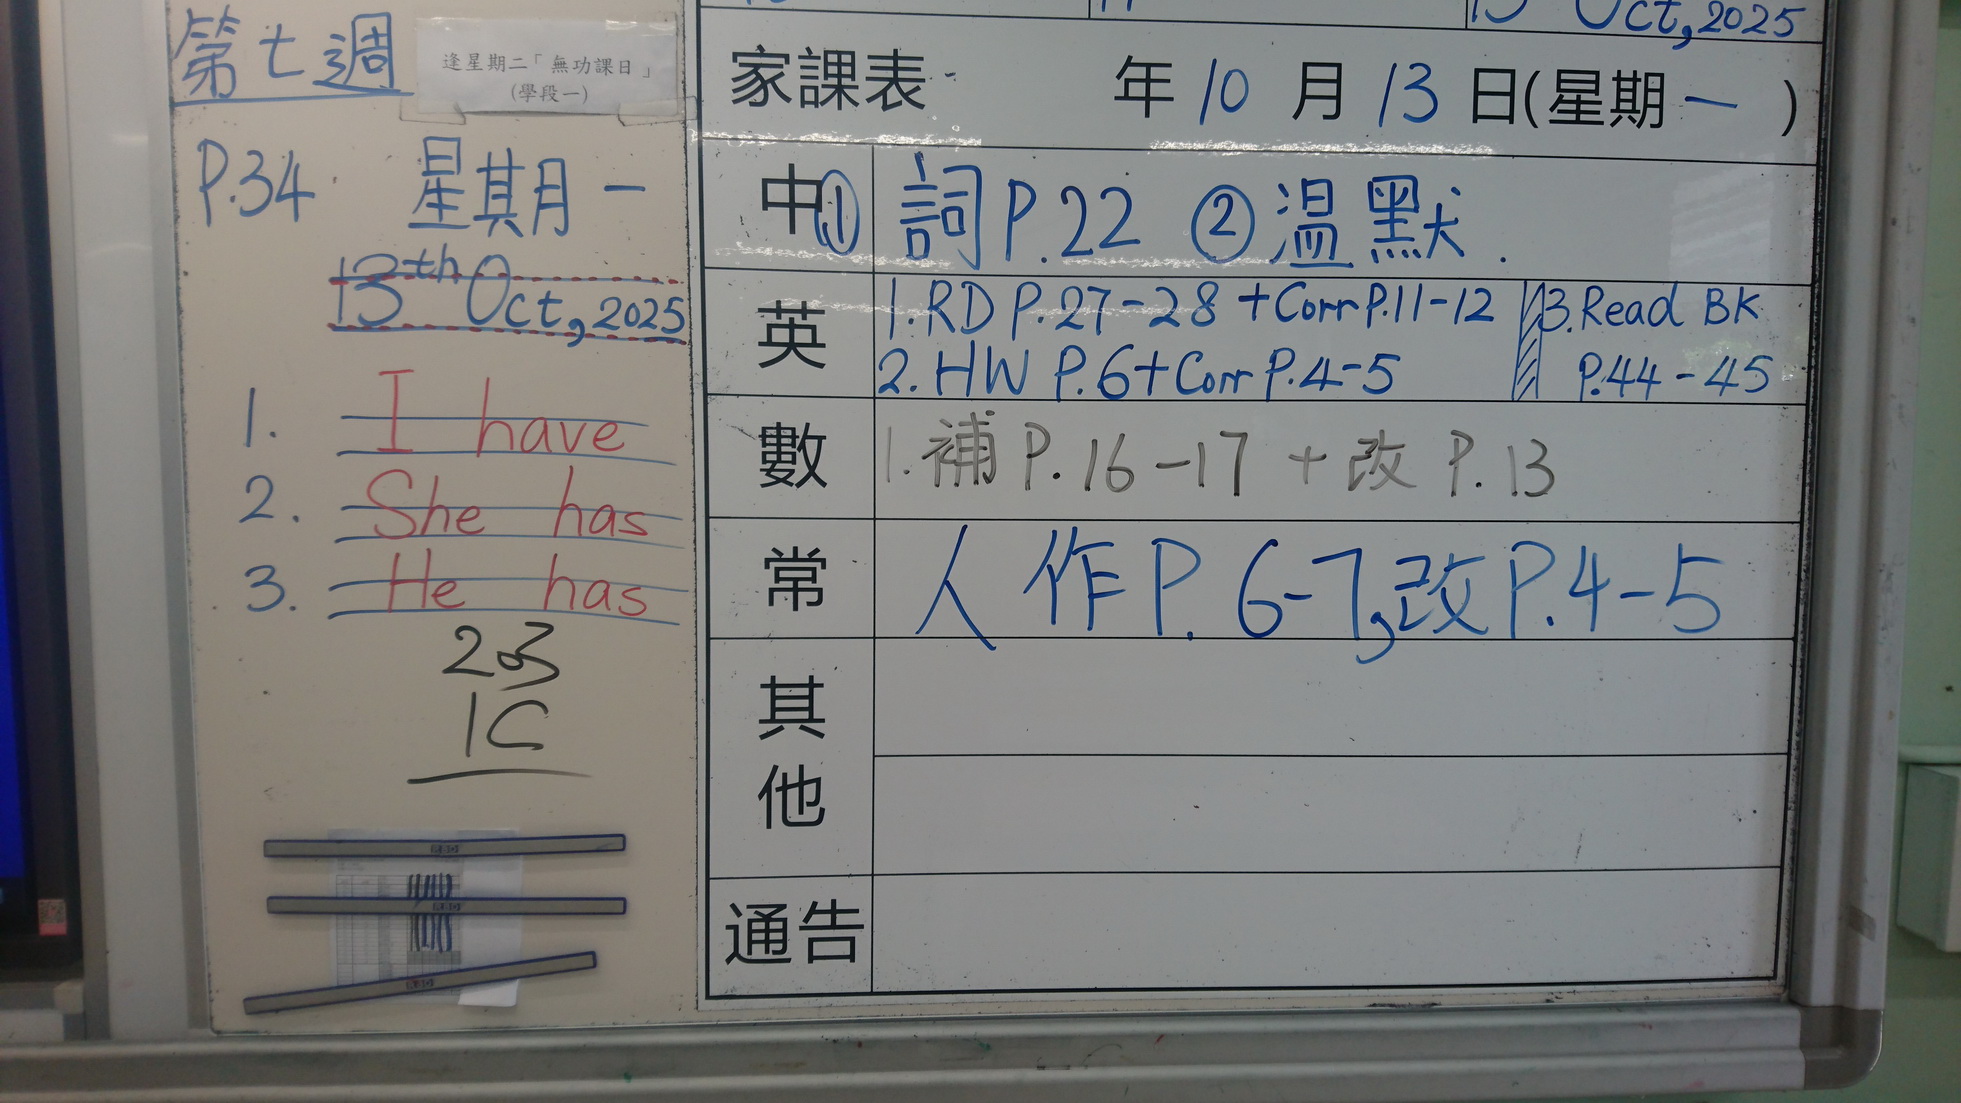 第七週
逢星期二「無功課日」
(學段一)
P.34 星期一
13th Oct, 2025
1. I have
2. She has
3. He has
1C
Oct, 2025
家課表 年 10 月 13 日(星期一)
中 ① 詞 P.22 ② 温默.
英 1. RD P.27-28 + Corr P.11-12 3. Read BK
2. HW P.6 + Corr P.4-5 P.44-45
數 1. 補 P.16-17 + 改 P.13
常 人作 P.6-7, 改 P.4-5
其他
通告